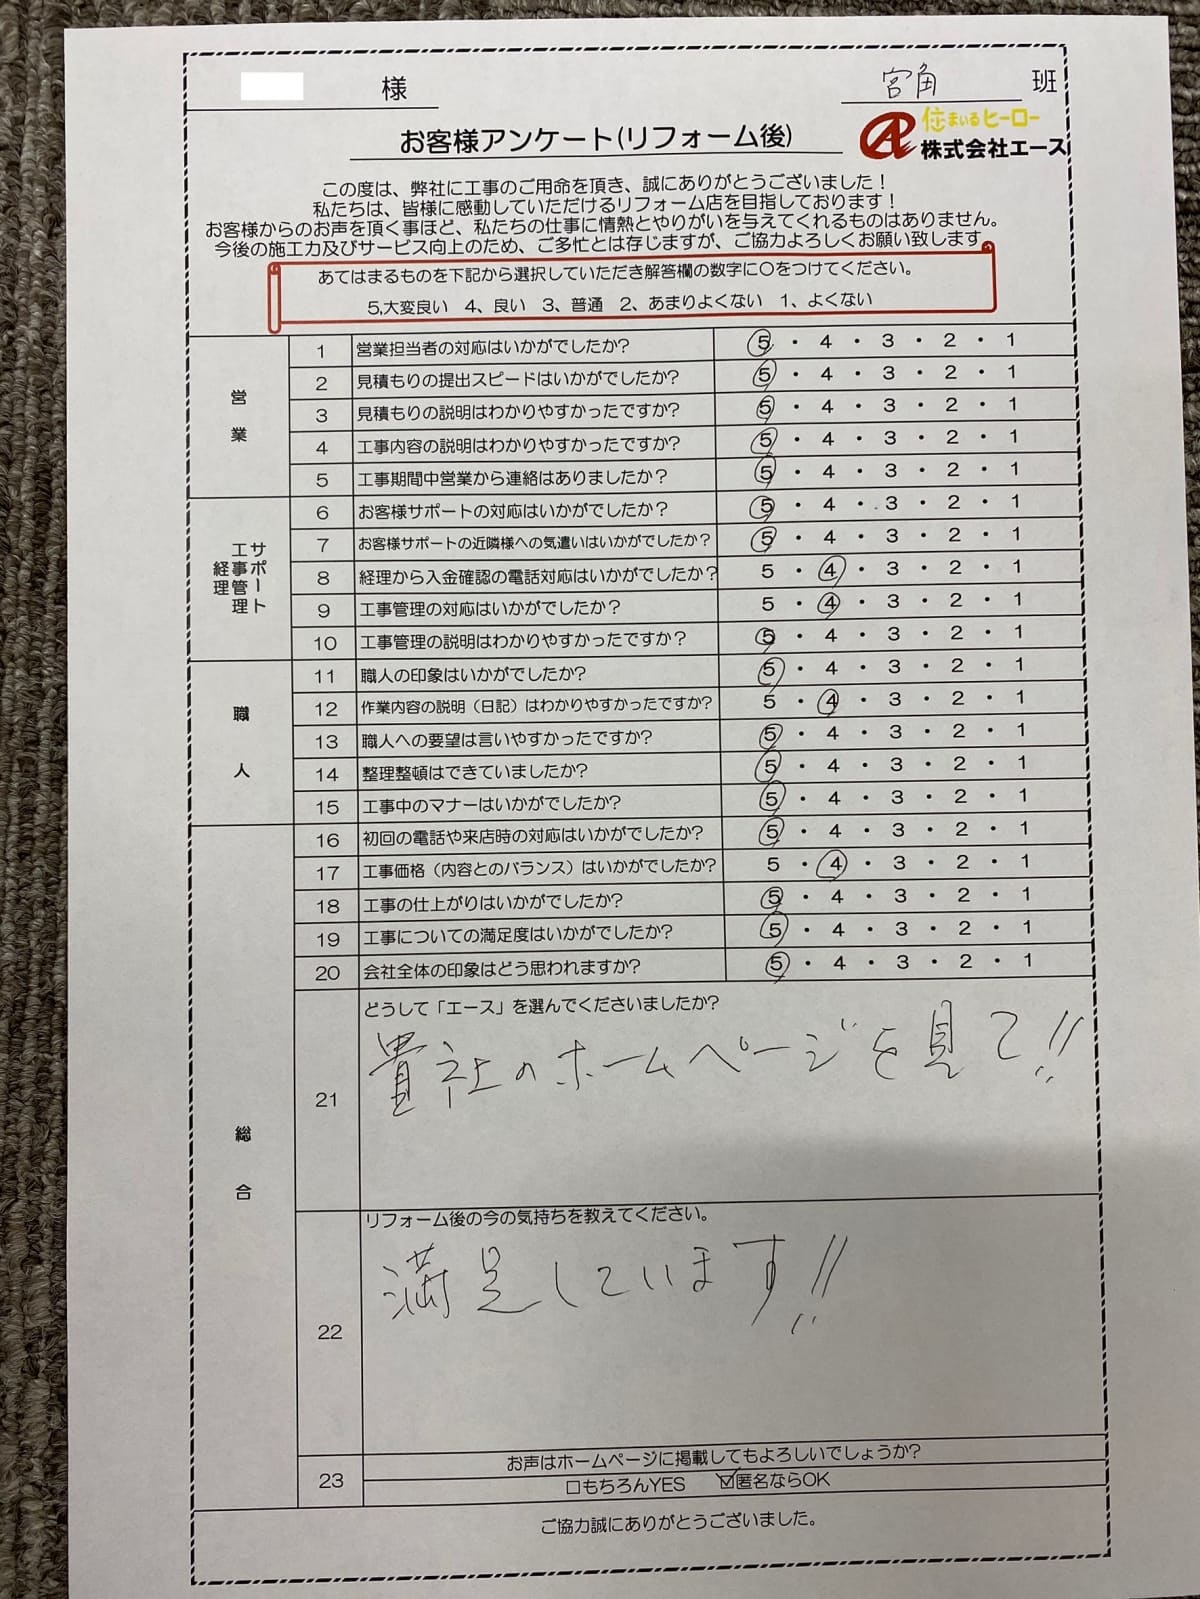 様
宮角 班
お客様アンケート(リフォーム後)
住まいるヒーロー
株式会社エース
この度は、弊社に工事のご用命を頂き、誠にありがとうございました！
私たちは、皆様に感動していただけるリフォーム店を目指しております！
お客様からのお声を頂く事ほど、私たちの仕事に情熱とやりがいを与えてくれるものはありません。
今後の施工力及びサービス向上のため、ご多忙とは存じますが、ご協力よろしくお願い致します。
あてはまるものを下記から選択していただき解答欄の数字に〇をつけてください。
5,大変良い 4、良い 3、普通 2、あまりよくない 1、よくない
営業
1 営業担当者の対応はいかがでしたか？ 5・4・3・2・1
2 見積もりの提出スピードはいかがでしたか？ 5・4・3・2・1
3 見積もりの説明はわかりやすかったですか？ 5・4・3・2・1
4 工事内容の説明はわかりやすかったですか？ 5・4・3・2・1
5 工事期間中営業から連絡はありましたか？ 5・4・3・2・1
サポート
工事管理
経理
6 お客様サポートの対応はいかがでしたか？ 5・4・3・2・1
7 お客様サポートの近隣様への気遣いはいかがでしたか？ 5・4・3・2・1
8 経理から入金確認の電話対応はいかがでしたか？ 5・4・3・2・1
9 工事管理の対応はいかがでしたか？ 5・4・3・2・1
10 工事管理の説明はわかりやすかったですか？ 5・4・3・2・1
職人
11 職人の印象はいかがでしたか？ 5・4・3・2・1
12 作業内容の説明（日記）はわかりやすかったですか？ 5・4・3・2・1
13 職人への要望は言いやすかったですか？ 5・4・3・2・1
14 整理整頓はできていましたか？ 5・4・3・2・1
15 工事中のマナーはいかがでしたか？ 5・4・3・2・1
総合
16 初回の電話や来店時の対応はいかがでしたか？ 5・4・3・2・1
17 工事価格（内容とのバランス）はいかがでしたか？ 5・4・3・2・1
18 工事の仕上がりはいかがでしたか？ 5・4・3・2・1
19 工事についての満足度はいかがでしたか？ 5・4・3・2・1
20 会社全体の印象はどう思われますか？ 5・4・3・2・1
21 どうして「エース」を選んでくださいましたか？
貴社のホームページを見て!!
22 リフォーム後の今の気持ちを教えてください。
満足しています!!
23 お声はホームページに掲載してもよろしいでしょうか？
□もちろんYES ☑匿名ならOK
ご協力誠にありがとうございました。